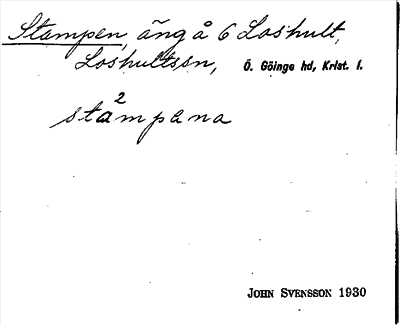 Stampen, äng å 6 Loshult,
Loshultssn, Ö. Göinge hd, Krist. l.
sta²mpana
JOHN SVENSSON 1930